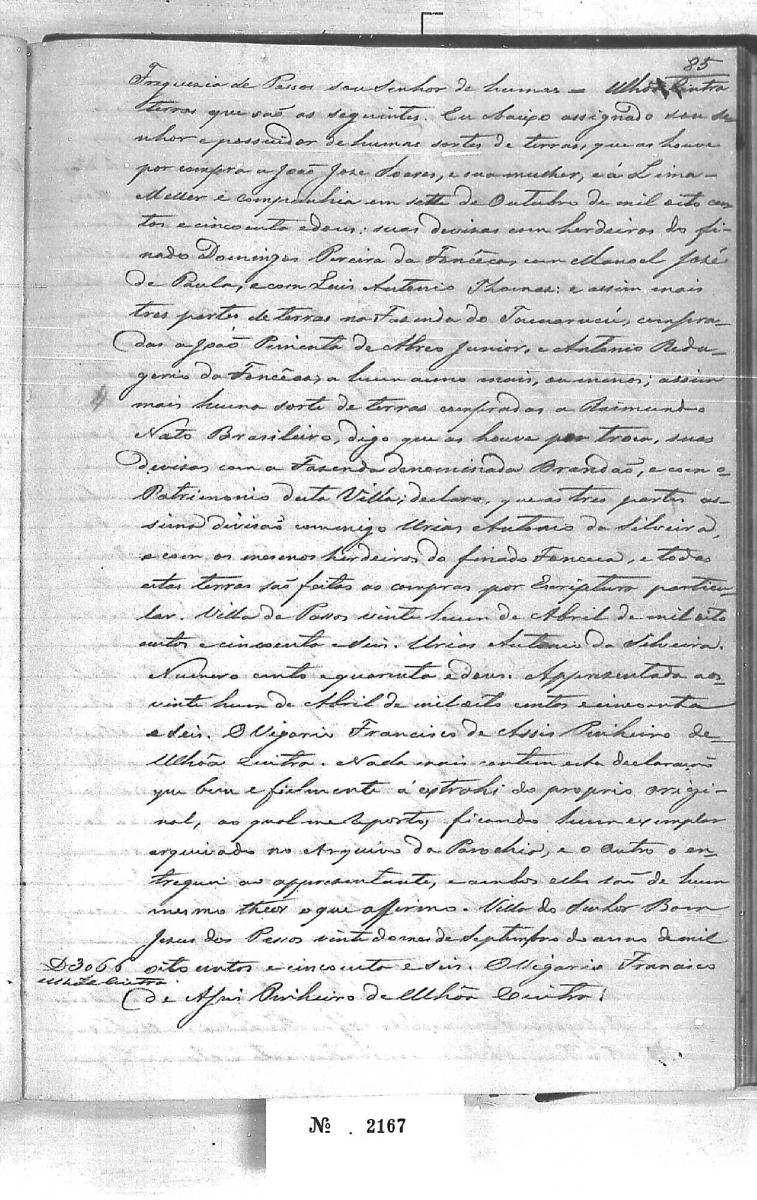 85
Freguezia de Passos sou Senhor de humas = Uhôa Cintra
terras que saõ as seguintes. Eu abaixo assignado sou se-
nhor e possuidor de humas sortes de terras, que as houve
por compra a João Jose Soares, e sua mulher, e á Lima
e companhia em sette de Outubro de mil oito cen-
tos e cincoenta e dous: suas divisas com herdeiros do fi-
nado Domingos Pereira da Fonceca, com Manoel José
de Paula, e com Luis Antonio Thomas: e assim mais
tres partes de terras na Fazenda do compra-
das a João Pimenta de Abreo Junior, e Antonio
da Fonceca, a hum anno mais, ou menos; assim
mais huma sorte de terras compradas a Raimundo
Nato Brasileiro, digo que as houve por troca, suas
divisas com a Fazenda denominada Brandaõ, e com o
Patrimonio desta Villa; declaro, que as tres partes as-
sima divisaõ commigo Urias Antonio da Silveira,
e com os mesmos herdeiros do finado Fonceca, e todas
estas terras saõ feitas as compras por Escriptura particu-
lar. Villa de Passos vinte hum de Abril de mil oito
centos e cincoenta e seis. Urias Antonio da Silveira.
Numero cento e quarenta e dous. Appresentada aos
vinte hum de Abril de mil oito centos e cincoenta
e seis. O Vigario Francisco de Assis Pinheiro de
Uhôa Cintra. Nada mais contem esta declaraçaõ
que bem e fielmente á extrahi do proprio origi-
nal, ao qual me reporto, ficando hum exemplar
arquivado no Arquivo da Parochia, e o outro o en-
treguei ao appresentante, e ambos elles saõ de hum
mesmo theor o que affirmo. Villa do Senhor Bom
Jesus dos Passos vinte do mes de Septembro do anno de mil
D 3066 oito centos e cincoenta e seis. O Vigario Francisco
Uhôa Cintra
de Assis Pinheiro de Uhôa Cintra.
Nº . 2167